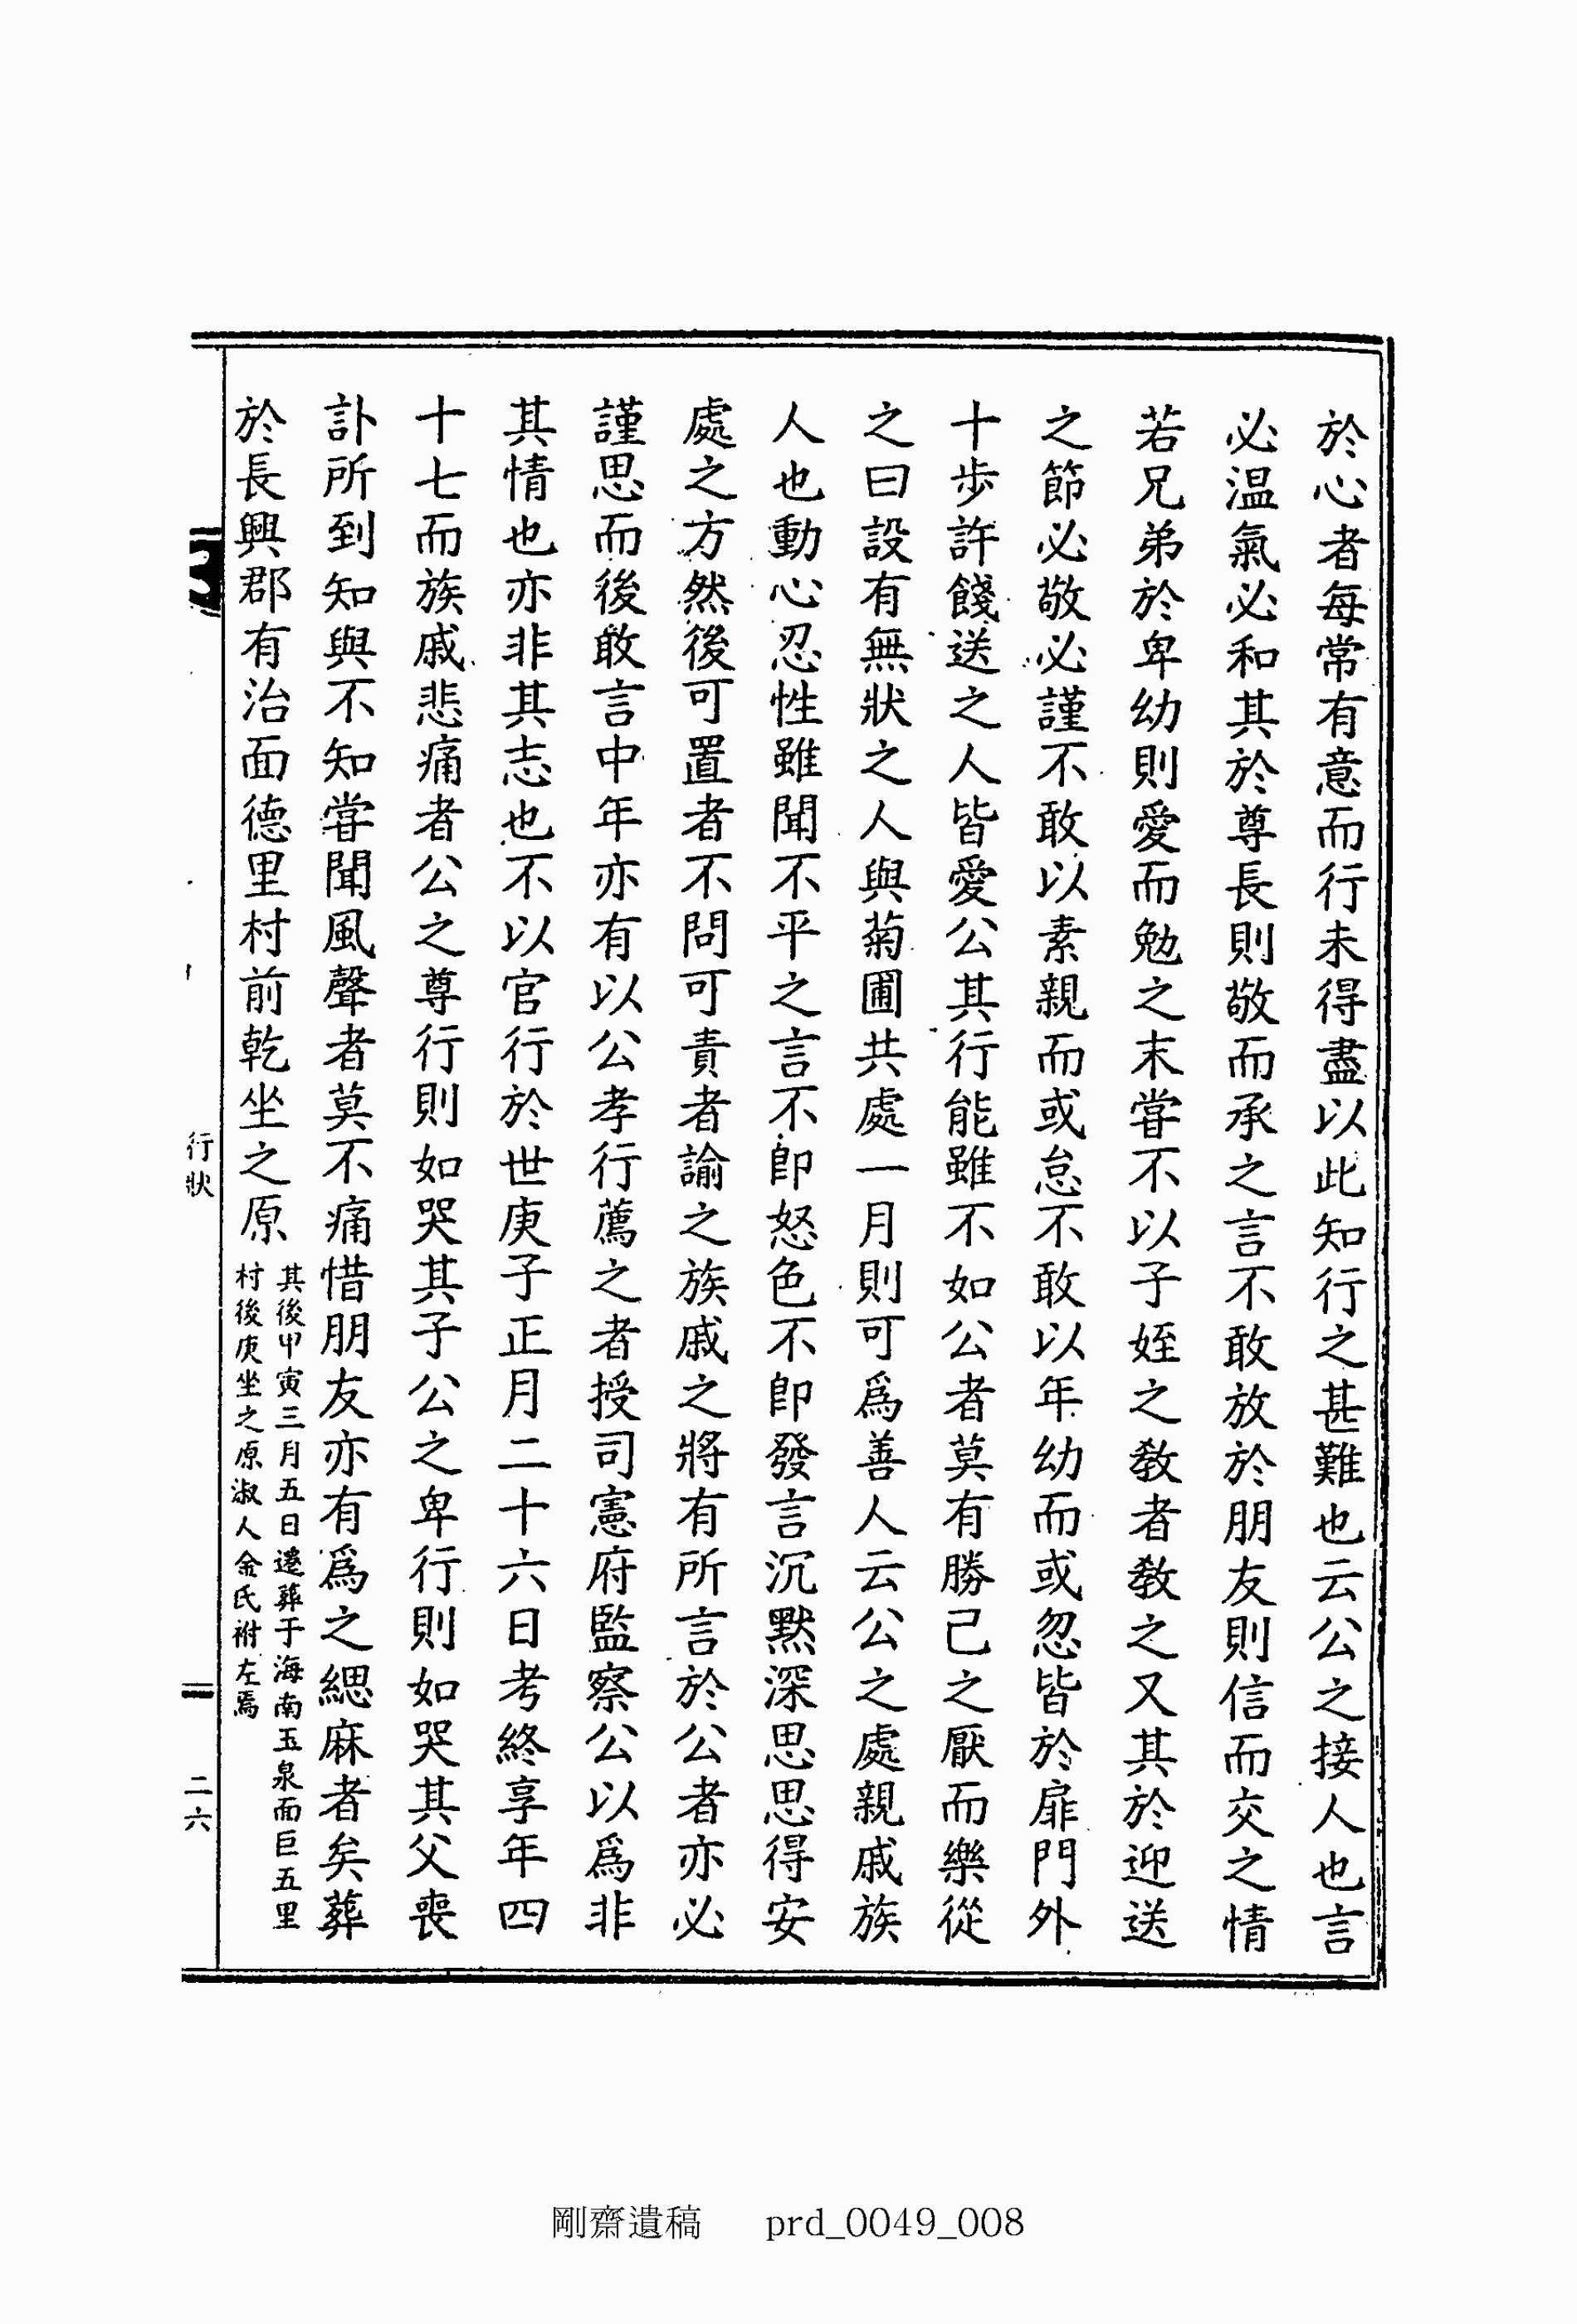 於心者每常有意而行未得盡以此知行之甚難也云公之接人也言
必温氣必和其於尊長則敬而承之言不敢放於朋友則信而交之情
若兄弟於卑幼則愛而勉之末甞不以子姪之教者教之又其於迎送
之節必敬必謹不敢以素親而或怠不敢以年幼而或忽皆於扉門外
十歩許餞送之人皆愛公其行能雖不如公者莫有勝己之厭而樂從
之曰設有無狀之人與菊圃共處一月則可爲善人云公之處親戚族
人也動心忍性雖聞不平之言不即怒色不即發言沉黙深思思得安
處之方然後可置者不問可責者諭之族戚之將有所言於公者亦必
謹思而後敢言中年亦有以公孝行薦之者授司憲府監察公以爲非
其情也亦非其志也不以官行於世庚子正月二十六日考終享年四
十七而族戚悲痛者公之尊行則如哭其子公之卑行則如哭其父喪
訃所到知與不知甞聞風聲者莫不痛惜朋友亦有爲之緦麻者矣葬
於長興郡有治面德里村前乾坐之原
其後甲寅三月五日遷葬于海南玉泉面巨五里
村後庚坐之原淑人金氏祔左焉
行狀
二六
剛齋遺稿 prd_0049_008